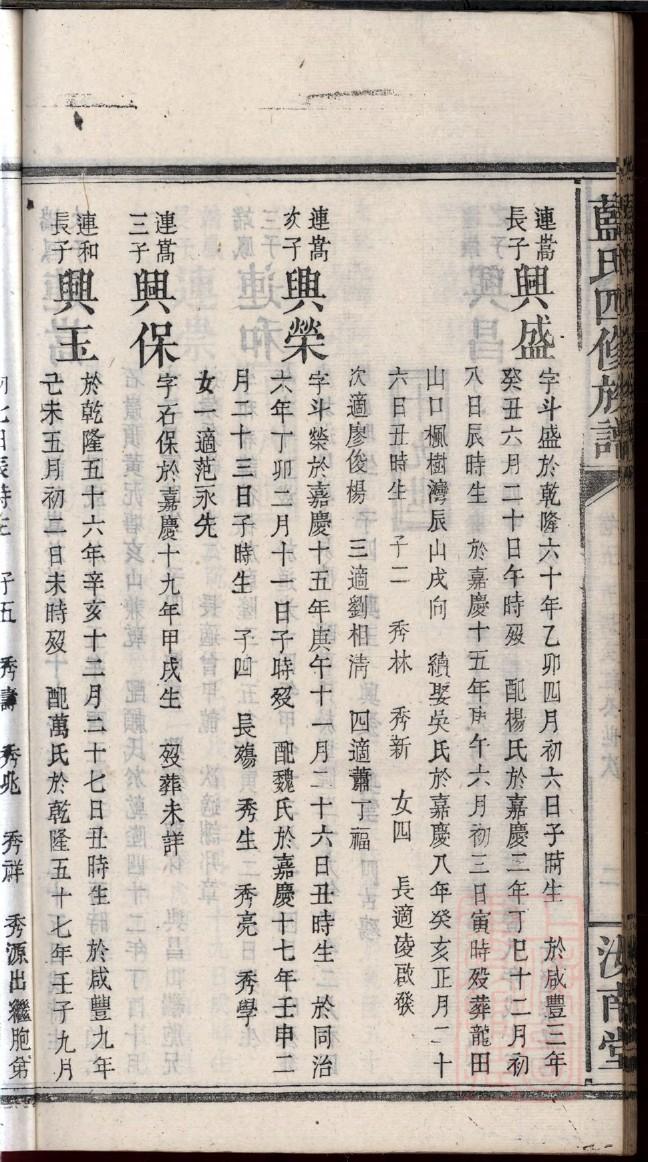 藍氏四修族譜
汝南堂
連嵩長子興盛
字斗盛於乾隆六十年乙卯四月初六日子時生　於咸豐三年
癸丑六月二十日午時歿　配楊氏於嘉慶三年丁巳十二月初
八日辰時生　於嘉慶十五年庚午六月初三日寅時歿葬龍田
山口楓樹灣辰山戌向　續娶吳氏於嘉慶八年癸亥正月二十
六日丑時生　子二　秀林　秀新　女四　長適凌啟發
次適廖俊楊　三適劉相清　四適蕭丁福
連嵩次子興榮
字斗榮於嘉慶十五年庚午十一月二十六日丑時生　於同治
六年丁卯二月十一日子時歿　配魏氏於嘉慶十七年壬申二
月二十三日子時生　子四　長殤　秀生　秀亮　秀學
女一適范永先
連嵩三子興保
字石保於嘉慶十九年甲戌生　歿葬未詳
連和長子興玉
於乾隆五十六年辛亥十二月二十七日丑時生　於咸豐九年
己未五月初二日未時歿　配萬氏於乾隆五十七年壬子九月
初七日辰時生　子五　秀壽　秀兆　秀祥　秀源出繼胞弟